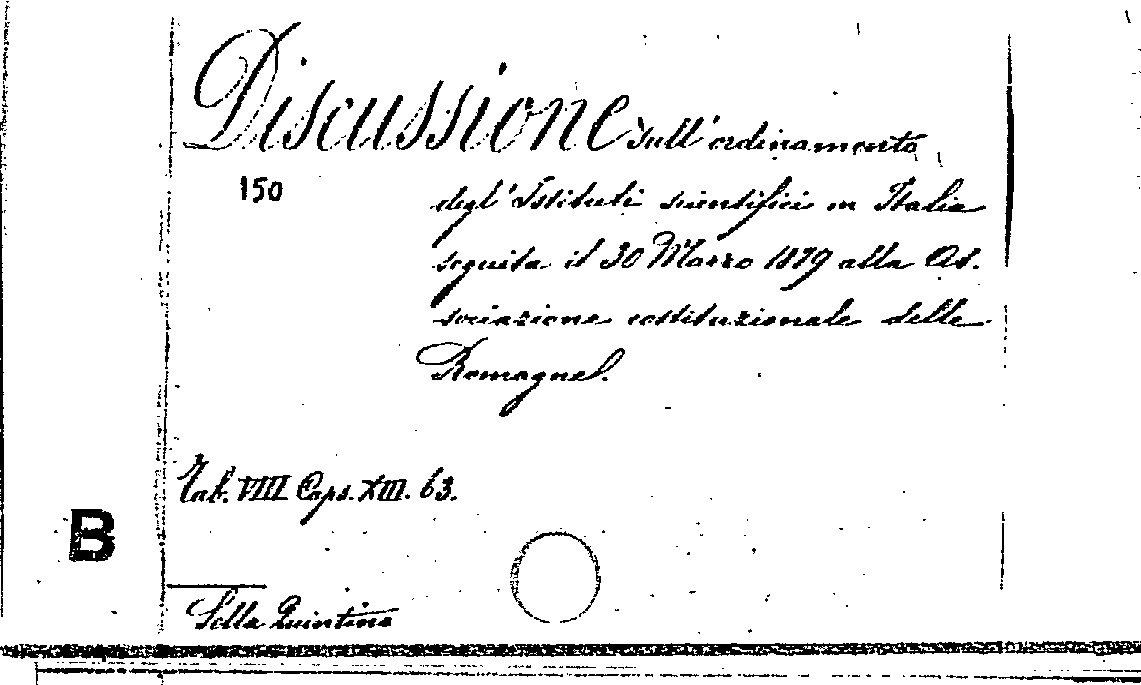 Discussione sull'ordinamento
150
degl'Istituti scientifici in Italia
seguita il 30 Marzo 1879 alla As-
sociazione costituzionale delle
Romagne.
Tab. VIII Caps. XIII. 63.
B
Sella Quintino